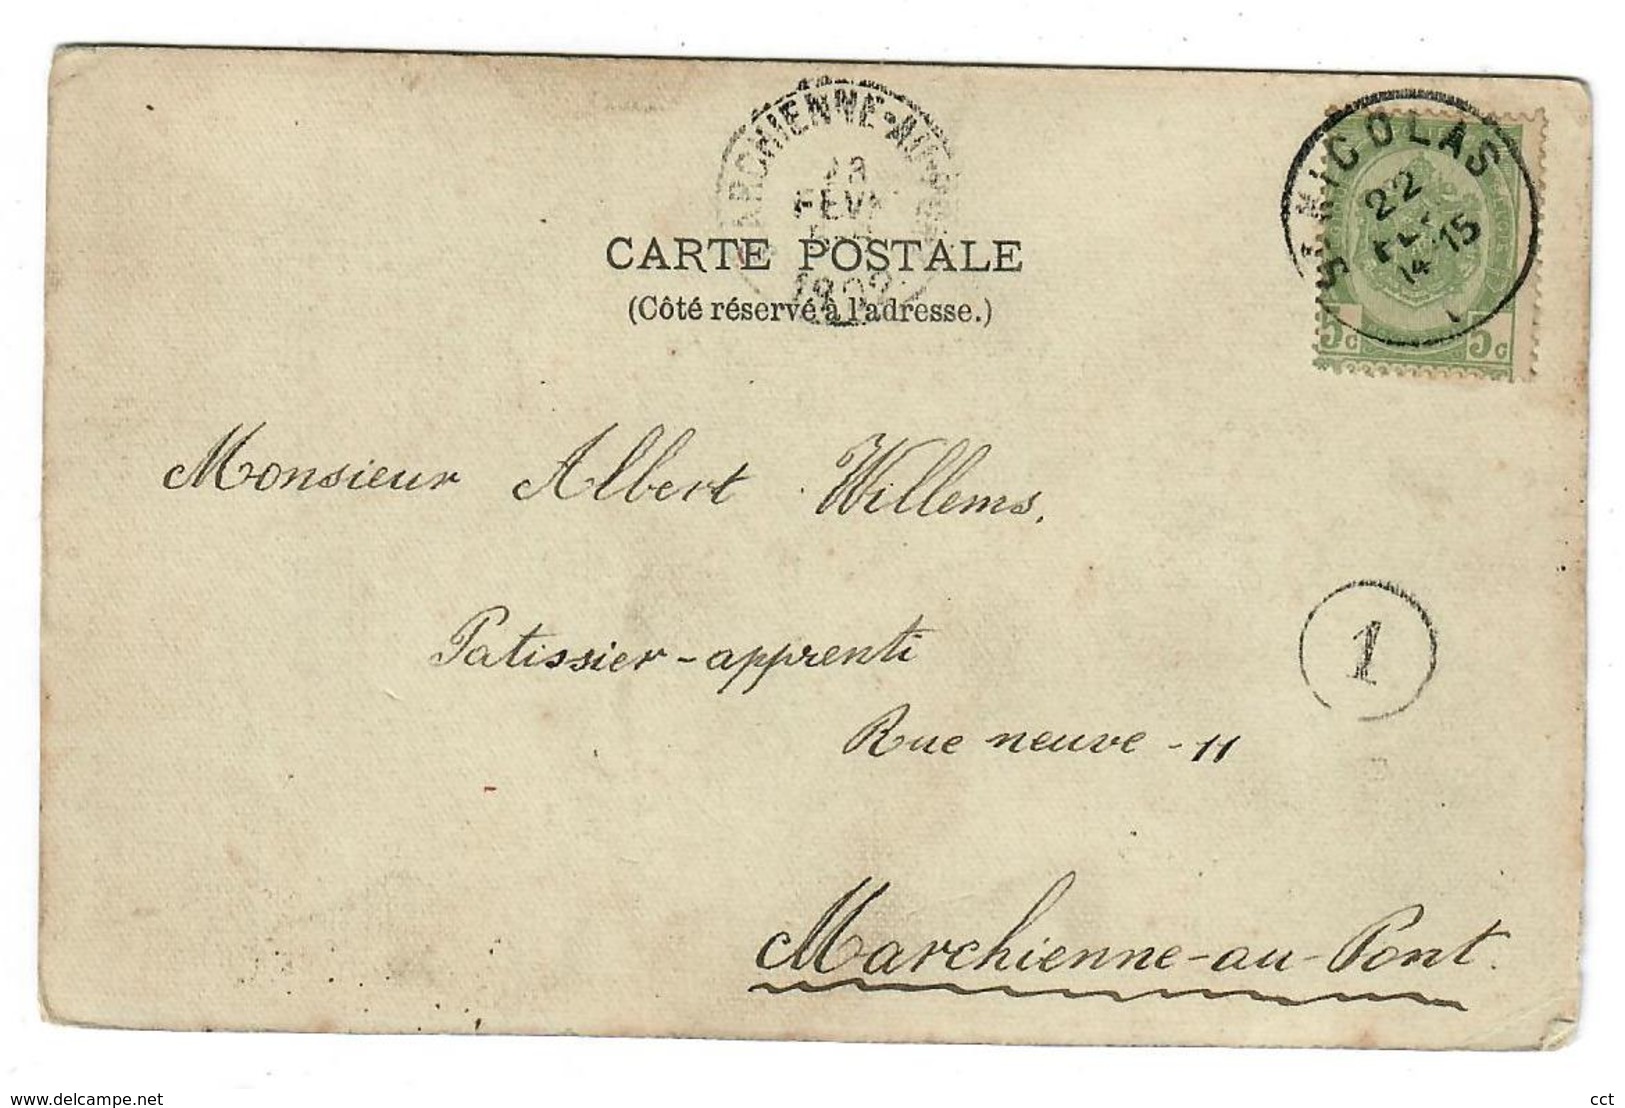 MARCHIENNE-AU-
23
FÉVR
1902
ST NICOLAS
22
14-15
5c 5c
CARTE POSTALE
(Côté réservé à l'adresse.)
Monsieur Albert Willems.
Patissier-apprenti
1
Rue neuve - 11
Marchienne-au-Pont.
www.delcampe.net
cct